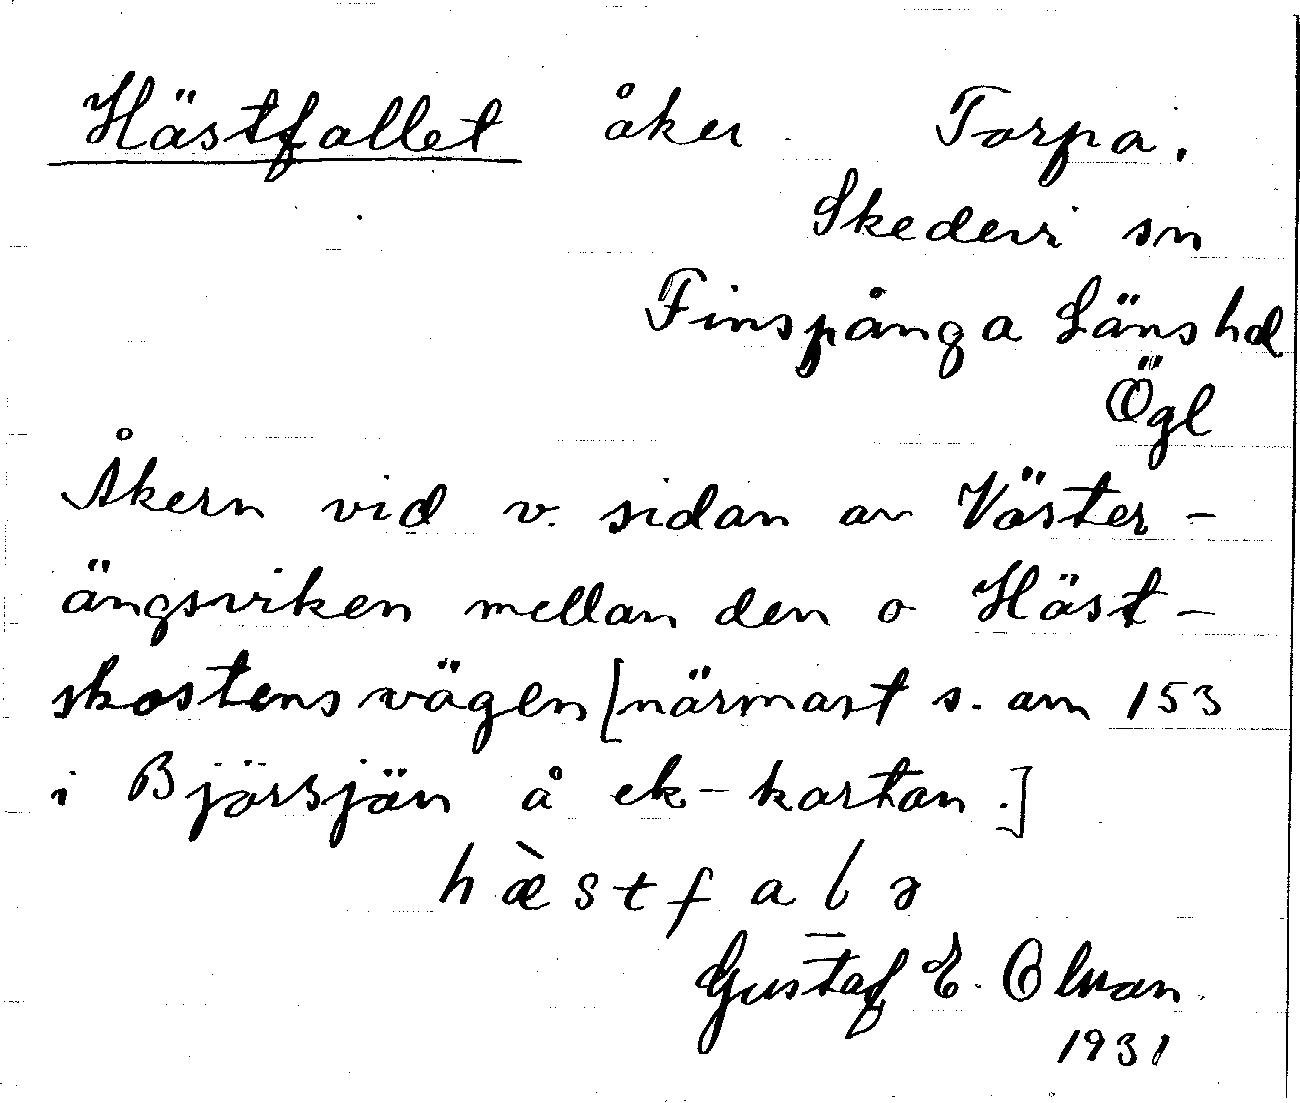 Hästfallet åker Torpa.
Skedevi sn
Finspånga Länshd
Ögl
Åkern vid v. sidan av Väster-
ängsviken mellan den o Häst-
skostensvägen [närmast s. om 153
i Björsjön å ek-kartan.]
hæ̀stfalə
Gustaf E. Olsson
1931